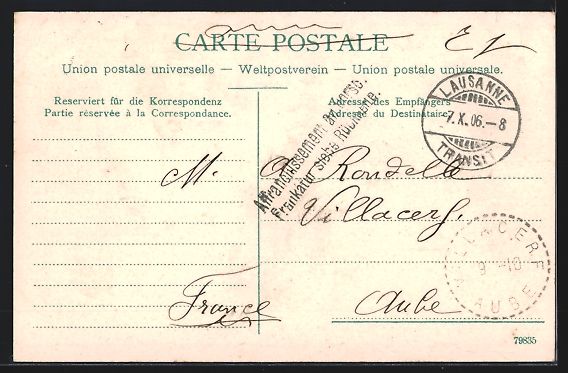 CARTE POSTALE
Union postale universelle — Weltpostverein — Union postale universale.
Reserviert für die Korrespondenz
Partie réservée à la Correspondance.
Adresse des Empfängers
Adresse du Destinataire
Affranchissement au verso.
Frankatur siehe Rückseite.
LAUSANNE
7.X.06.–8
TRANSIT
M. A. Rondelle
Villacerf.
Aube
France
AUBE
79835